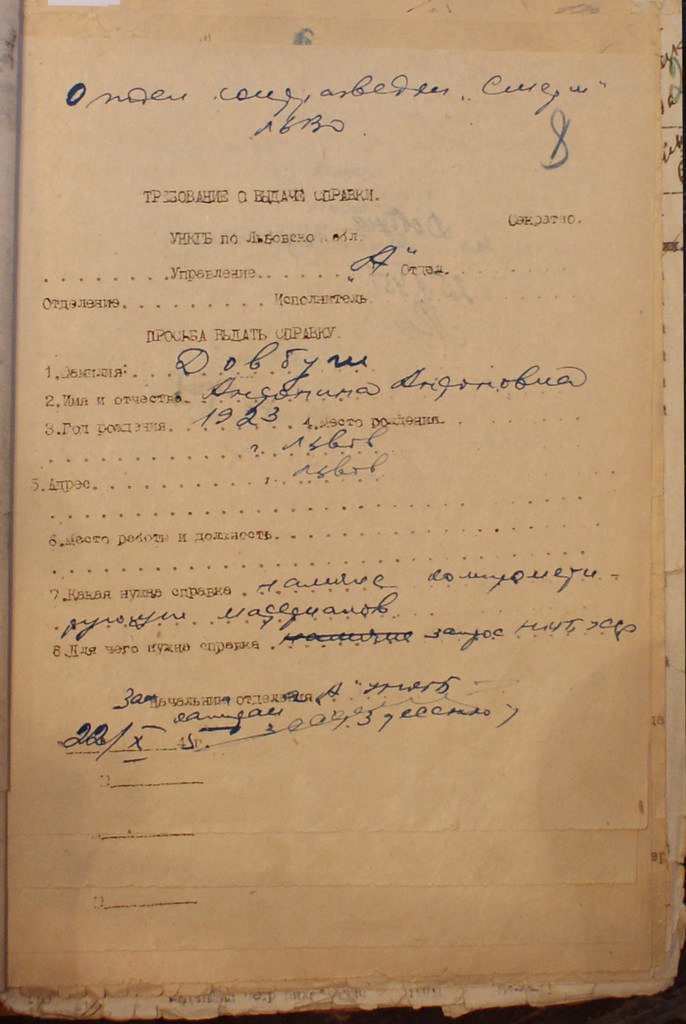 Отдел контрразведки "Смерш"
ЛВО
8
ТРЕБОВАНИЕ О ВЫДАЧЕ СПРАВКИ.
Секретно.
УНКГБ по Львовской обл.
........Управление......"А" Отдел.
Отделение......... Исполнитель
ПРОСЬБА ВЫДАТЬ СПРАВКУ.
1.Фамилия: Довбуш
2.Имя и отчество. Антонина Антоновна
3.Год рождения. 1923 4.Место рождения
г. Львов
5.Адрес. г. Львов
6.Место работы и должность.
7.Какая нужна справка наличие компромети-
рующих материалов
8.Для чего нужна справка наличие запрос
Зам Начальник отделения "А"
капитан
"22/X 45г.